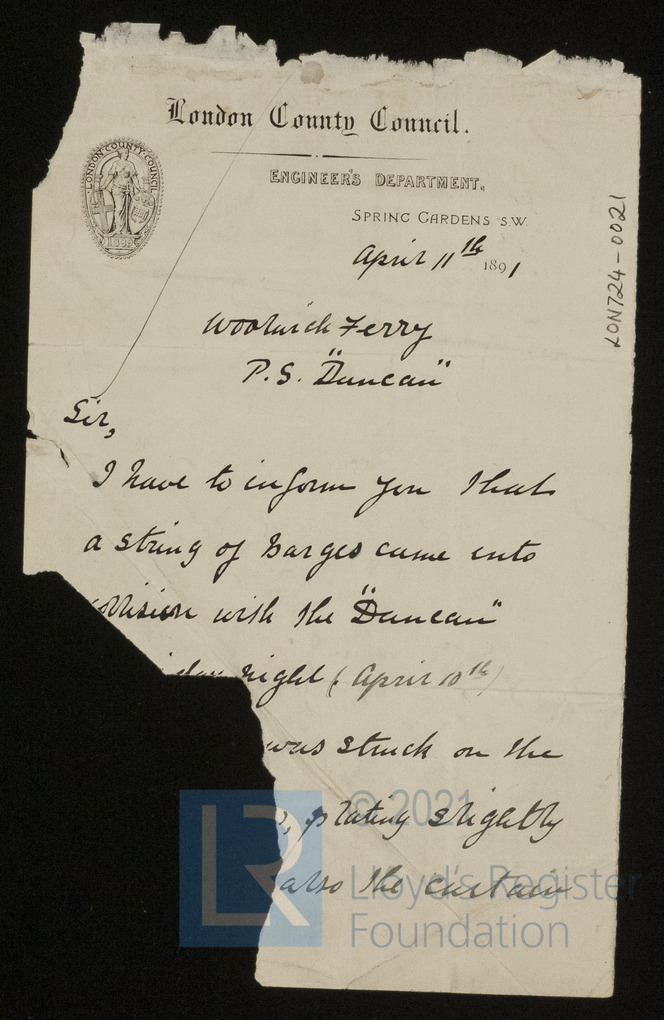 London County Council.
LONDON COUNTY COUNCIL
1889
ENGINEER'S DEPARTMENT,
SPRING GARDENS S.W.
April 11th 1891
LON724-0021
Woolwich Ferry
P.S. "Duncan"
Sir,
I have to inform you that
a string of barges came into
collision with the "Duncan"
night (April 10th)
was struck on the
plating slightly
also the curtain
© 2021
LR
Lloyd's Register
Foundation